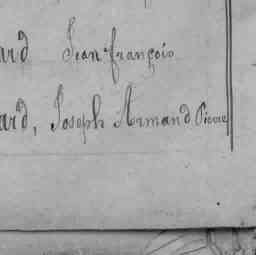 ard Jean françois
ard, Joseph Armand Pierre